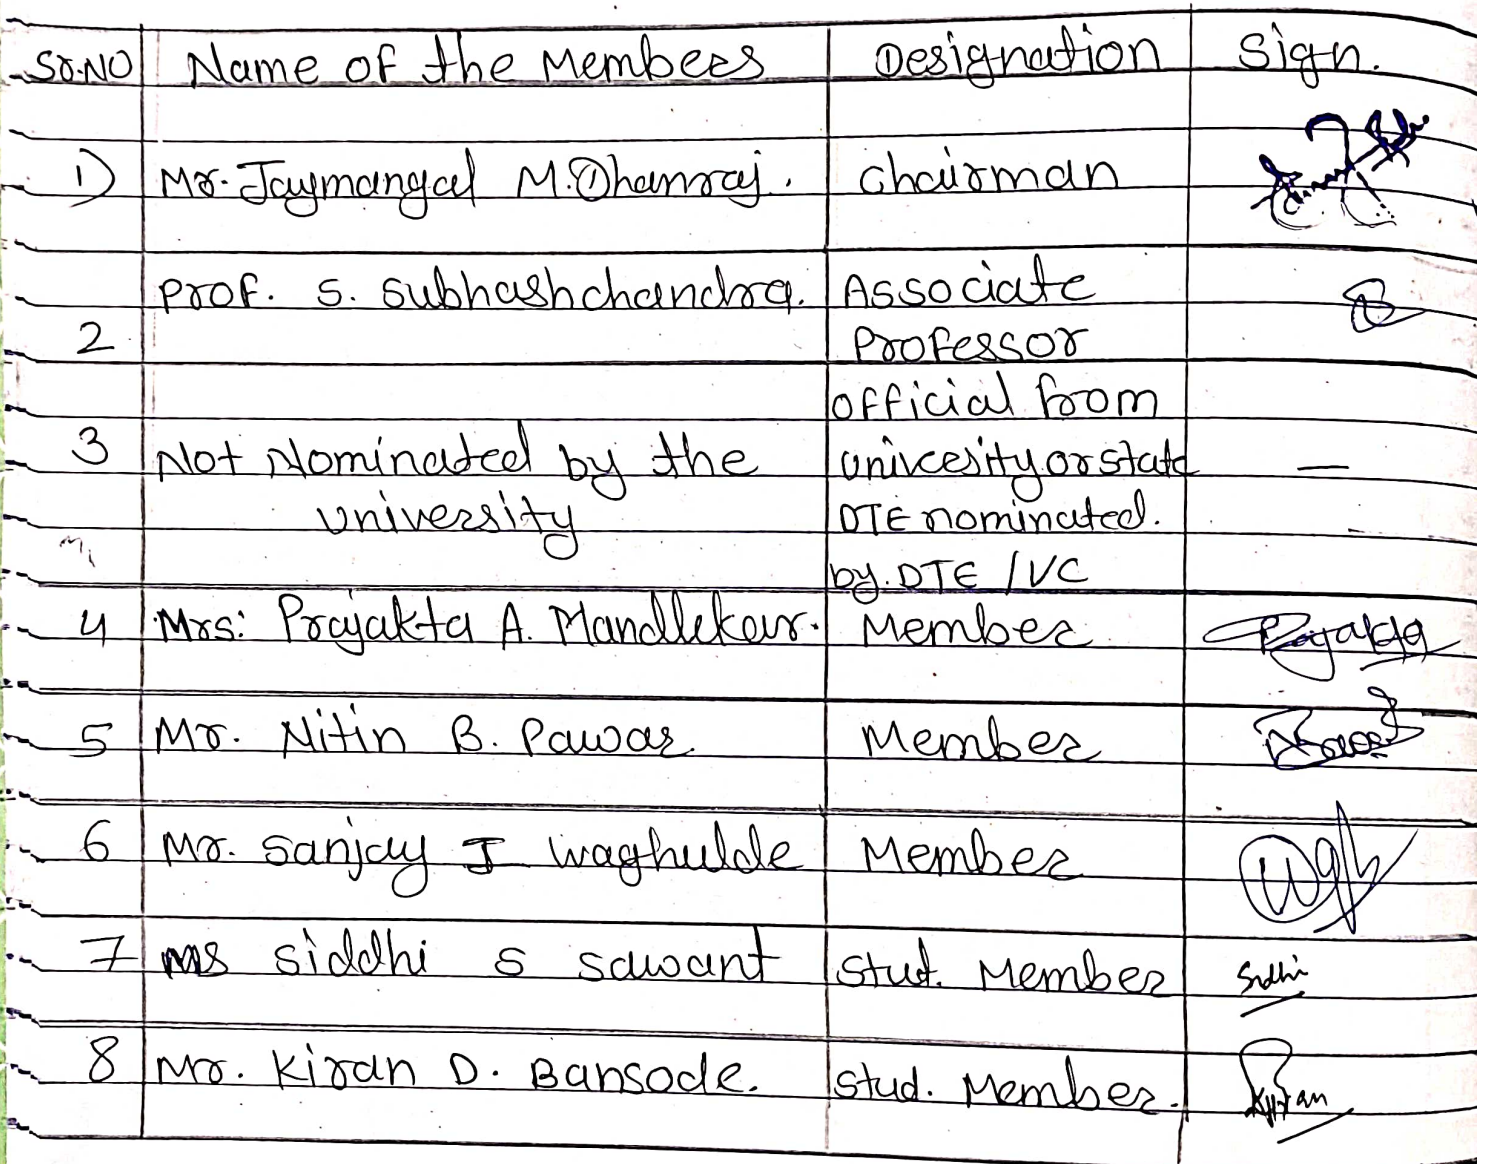 Sr.No Name of the Members Designation Sign.
1) Mr. Jaymangal M. Dhanraj. Chairman
Prof. S. Subhashchandra. Associate
2 Professor
official from
3 Not Nominated by the univcesity or state —
university DTE nominated.
by. DTE / VC
4 Mrs: Prajakta A. Mandlekar. Member Prajakta
5 Mr. Nitin B. Pawar Member
6 Mr. Sanjay J Waghulde Member
7 Ms Siddhi S Sawant Stud. Member Sidhi
8 Mr. Kiran D. Bansode. Stud. Member. Kiran